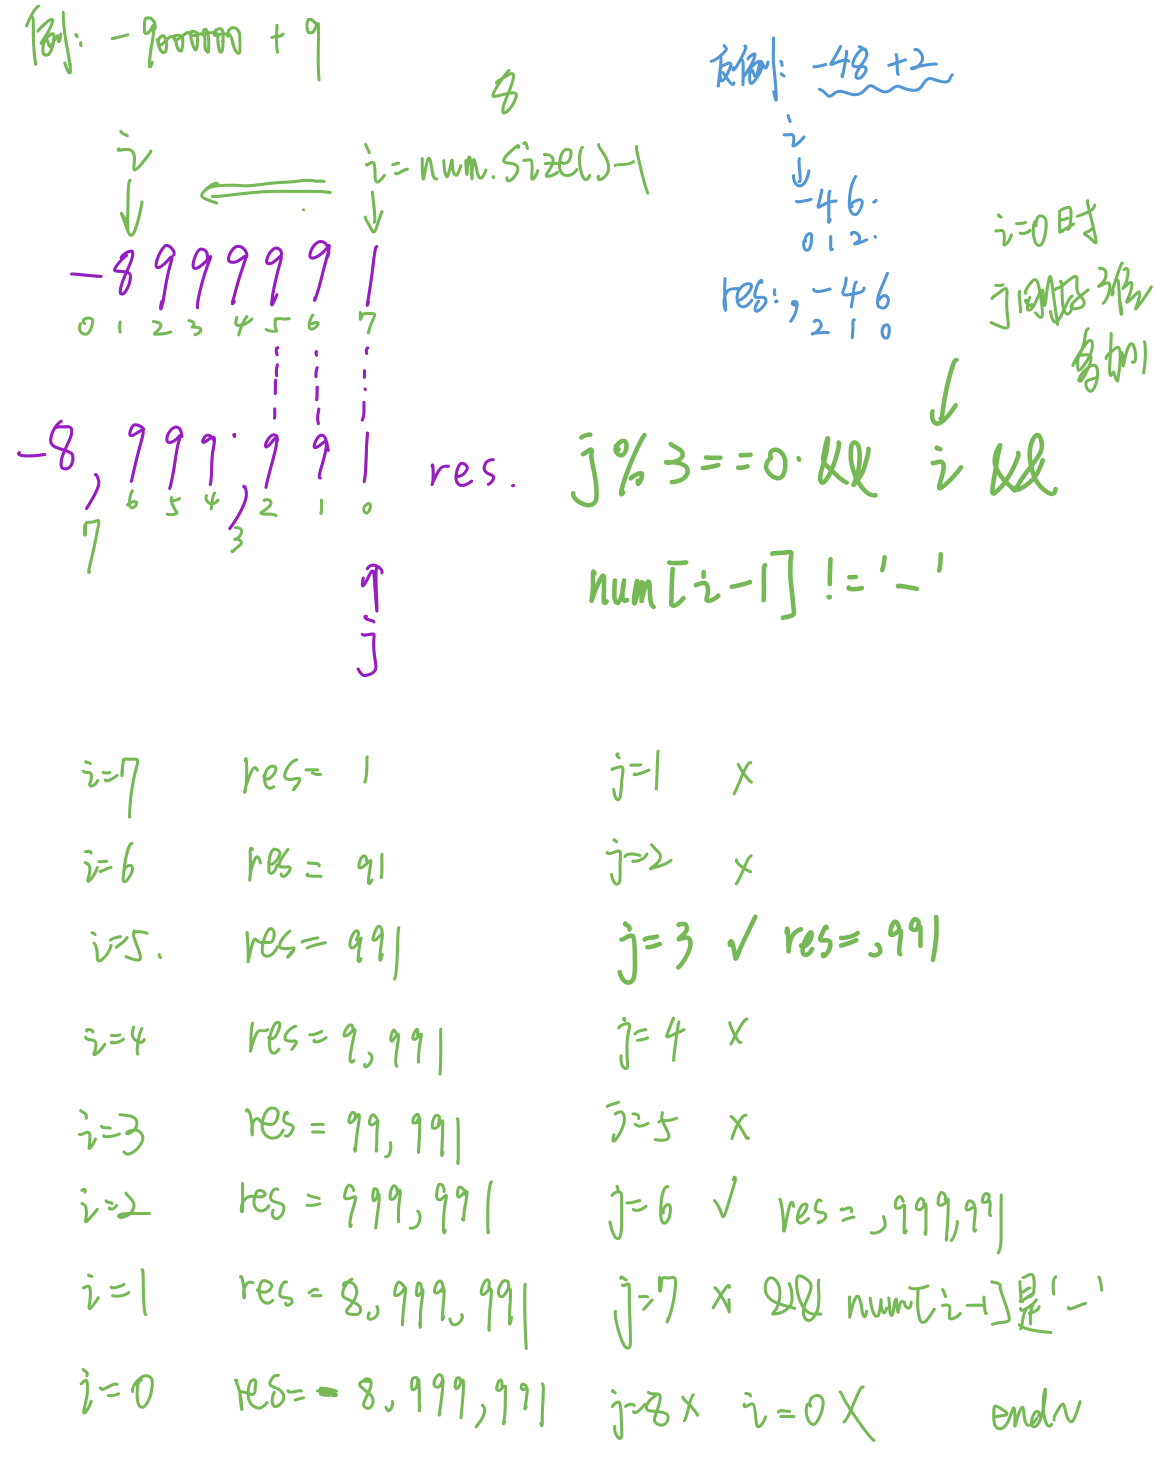 例: -9000000 + 9
8
i
i=num.size()-1
-8999991
0 1 2 3 4 5 6 7
-8,999,991 res.
7 6 5 4 3 2 1 0
j
反例: -48 +2
i
-46.
0 1 2.
res: ,-46
2 1 0
i=0时
j 刚好3位
多加1
j%3==0 && i &&
num[i-1] != '-'
i=7 res= 1 j=1 x
i=6 res= 91 j=2 x
i=5. res= 991 j=3 ✓ res=,991
i=4 res= 9,991 j=4 x
i=3 res= 99,991 j=5 x
i=2 res= 999,991 j=6 ✓ res= ,999,991
i=1 res= 8,999,991 j=7 x && num[i-1]是'-'
i=0 res= -8,999,991 j=8 x i=0 X end